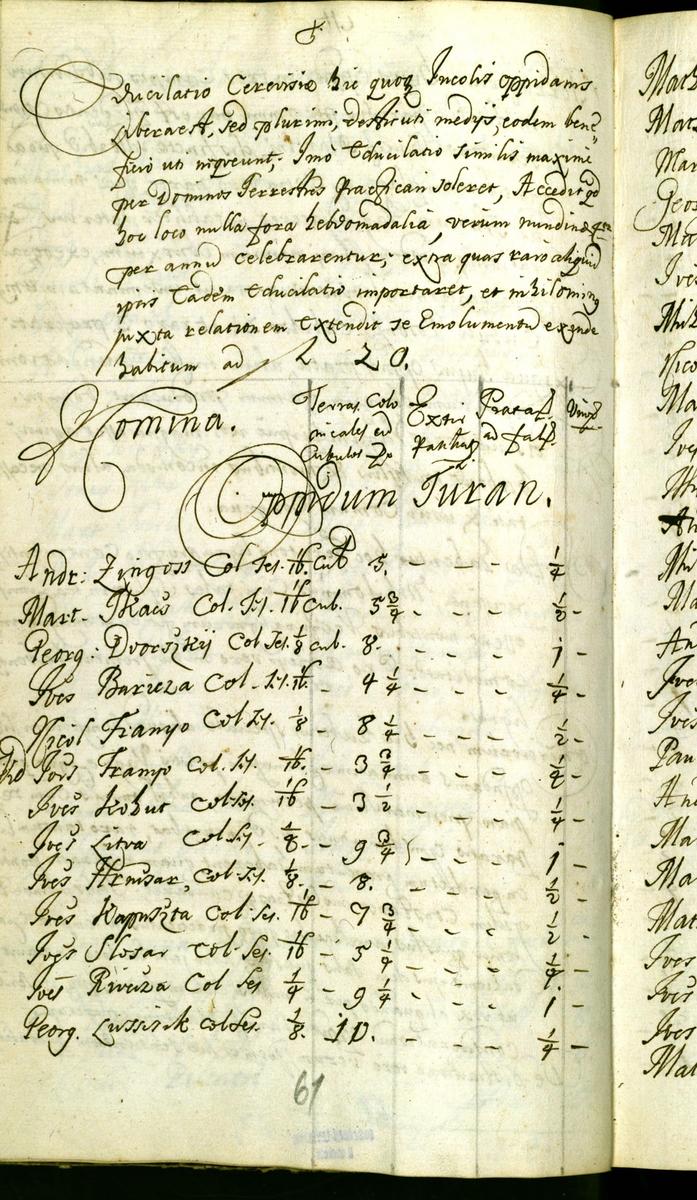 Educillatio Cerevisiæ hic quoq Incolis oppidanis
Libera est, sed plurimi, destituti medijs, eodem bene
ficio uti nequeunt; Imò Educillatio similis maxime
per Dominos Terrestres Præficari soleret, Accedit qd
hoc loco nulla fora hebdomadalia, verum nundinæ
per annũ celebrarentur; extra quas raro aliquid
ipsis Eadem Educillatio importaret, et nihilominq
juxta relationem Extendit se Emolumentũ exinde
habitum ad f 220.
Nomina. Terras Colo
nicales ad
Cubulos Prata
ad falc
Oppidum Turan.
Andr: Zingoss Col Ses. 1/16. Cub 5. - - - 1/4
Mart. Tkacs Col. Ses. 1/16 Cub. 5 3/4 - - - 1/2 -
Georg: Dvorszkij Col Ses. 1/8 cub. 8. - - - 1 -
Ives Barieza Col. Ses. 1/16. - 4 1/4 - - - 1/4 -
Nicol Franyo Col Ses. 1/8 - 8 1/4 - - - 1/2 -
Ives Franyo Col. Ses. 1/16. - 3 3/4 - - - 1/4 -
Ives Kohut Col Ses. 1/16 - 3 1/2 - - - 1/4 -
Ives Litva Col Ses. 1/8. - 9 3/4 - - - 1 -
Ives Hrusar, Col Ses. 1/8. - 8. - - - 1/2 -
Ives Kapuszta Col Ses. 1/16 - 7 3/4 - - - 1/2 -
Ives Slosar Col Ses. 1/16 - 5 1/4 - - - 1/4 -
Ives Rieuza Col Ses 1/4 - 9 1/4 - - - 1 -
Georg. Lussisk Col Ses. 1/8. 10. - - - 1/4 -
61